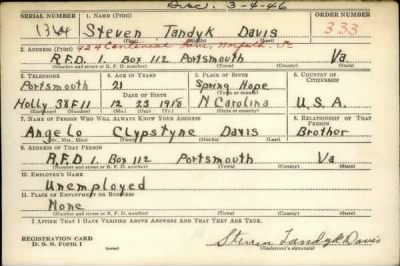 Disc. 3-4-46
SERIAL NUMBER 1. NAME (Print) ORDER NUMBER
1364 Steven Tandyk Davis 333
(First) (Middle) (Last)
2. ADDRESS (Print) 424 Ave, Norfolk,
R.F.D 1. Box 112 Portsmouth Va
(Number and street or R. F. D. number) (Town) (County) (State)
3. TELEPHONE 4. AGE IN YEARS 5. PLACE OF BIRTH 6. COUNTRY OF CITIZENSHIP
Portsmouth 21 Spring Hope
DATE OF BIRTH (Town or county)
Holly 38F11 12 23 1918 N Carolina U.S.A.
(Exchange) (Number) (Mo.) (Day) (Yr.) (State or country)
7. NAME OF PERSON WHO WILL ALWAYS KNOW YOUR ADDRESS 8. RELATIONSHIP OF THAT PERSON
Angelo Clypstyne Davis Brother
(Mr., Mrs., Miss) (First) (Middle) (Last)
9. ADDRESS OF THAT PERSON
R.F.D 1. Box 112 Portsmouth Va
(Number and street or R. F. D. number) (Town) (County) (State)
10. EMPLOYER'S NAME
Unemployed
11. PLACE OF EMPLOYMENT OR BUSINESS
None
(Number and street or R. F. D. number) (Town) (County) (State)
I AFFIRM THAT I HAVE VERIFIED ABOVE ANSWERS AND THAT THEY ARE TRUE.
REGISTRATION CARD
D. S. S. FORM 1 Steven Tandyk Davis
(Registrant's signature)